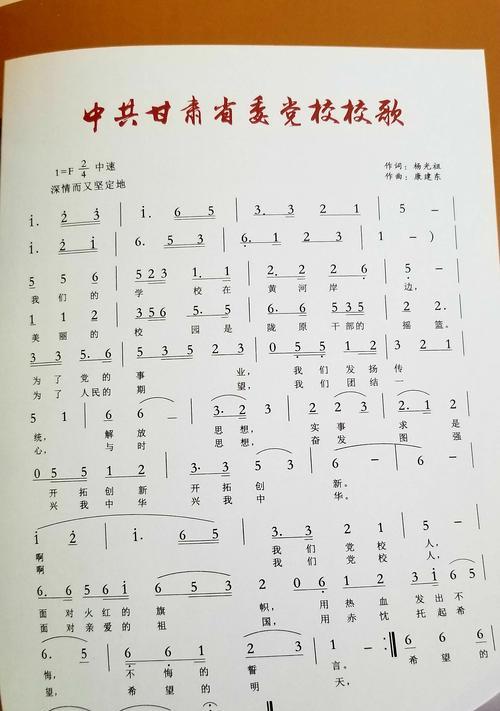 中共甘肃省委党校校歌
1=F 2/4 中速
作词：杨光祖
深情而又坚定地
作曲：康建东
i. 2 3 | i. 6 5 | 3. 2 1 3 | 5 - |
i. 2 i | 6. 5 3 | 6. 1 2 3 | 1 - )
5 5 6 | 5 2 3 1. 1 | 2. 2 2 6 | 5. - |
我们的 学 校在 黄河岸 边，
1 1 2 | 3 5 6 5. 5 | 1. 3 5 5 5 | 3 2. |
美丽的 校 园是 陇原干部的 摇篮。
3 3 5. 6 | 3 5 3 2. | 0 5 5 1 5 | 3 3 2 2 |
为了党的事 业， 我们发扬传
为了人民的期 望， 我们团结一
5 1 | 6 - | 3. 3 2 | 3. 2 2 |
统， 解放 思想， 实事 求是
心， 与时 思想， 奋发 图强
0 5 5 1 2 | 3. 3 5 2 | 1 - | 1 - |
开拓创新 开拓创 新。
兴我中华 兴我中 华。
i 2 | i 6 5 | 3. 3 2 1 | 5 3 |
啊 我们党校 人，
啊 我们党校 人，
6. 6 5 6 i | 6 5 3 | 2. 3 1 2 | 6. 5 6 5
面对火红的旗 帜，用热血发出不
面对亲爱的祖 国，用赤忱托起希
6. | 2 6 6 1 | 2 3 | 1 - :|| 6. 5 6 5
悔， 不悔的 誓 言。 希望的
望， 希望的 明 天，